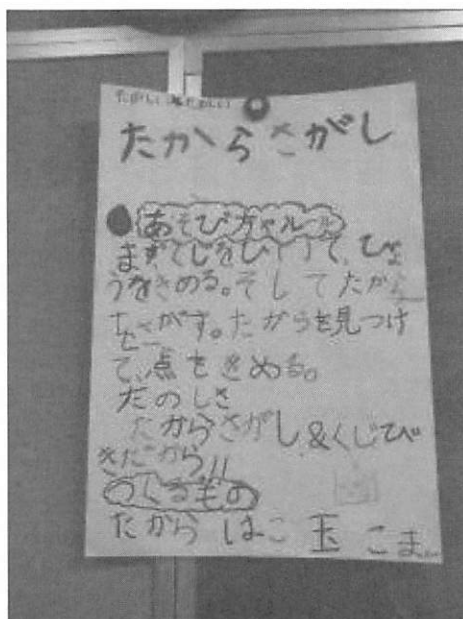 たのしい たのしい
たからさがし
あそび方やルール
まずくじをひいて、ひょ
うをきめる。そしてたから
をさがす。たからを見つけ
て、点をきめる。
たのしさ
たからさがし&くじび
きだから!!
つくるもの
たから はこ 玉 こま